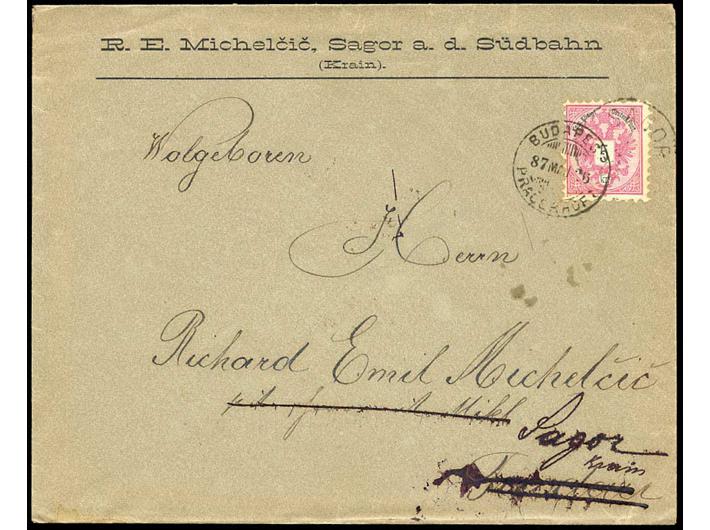 R. E. Michelčič, Sagor a. d. Südbahn
(Krain).
BUDAPEST
87 MAI
PRAGERHOF
5
Wolgeboren
Herrn
Richard Emil Michelčič
Sagor
Krain